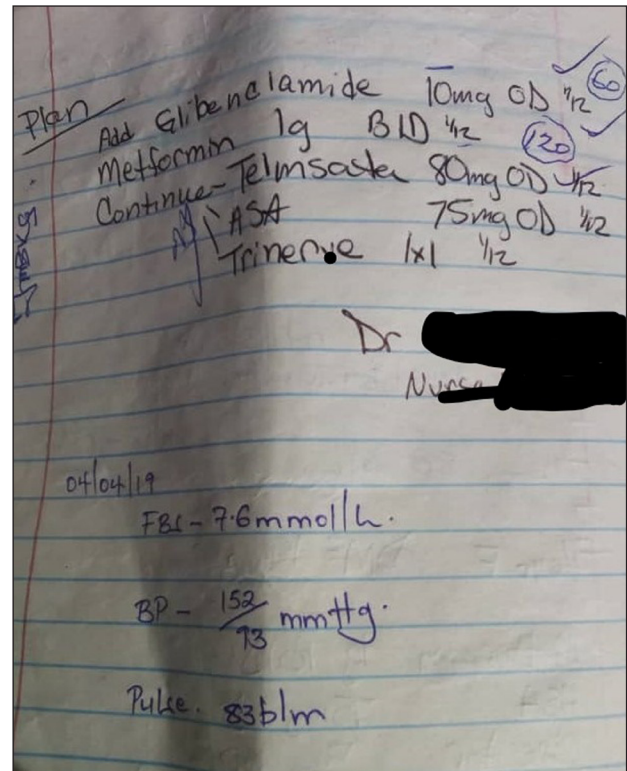 Plan
Add Glibenclamide 10mg OD 1/12 60
Metformin 1g BID 1/12 120
Continue - Telmsasta 80mg OD 1/12
ASA 75mg OD 1/12
Trinerve 1x1 1/12
Dr
Nurse
04/04/19
FBS - 7.6mmol/L.
BP - 152/93 mmHg.
Pulse. 83b/m